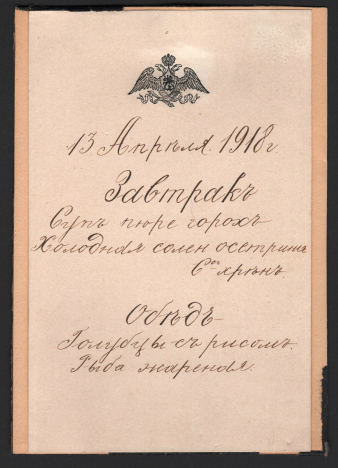 13 Апрѣля 1918 г.
Завтракъ
Супъ пюре горохъ
Холодная солен осетрина
Соу хрѣнъ.
Обѣдъ
Голубцы съ рисомъ.
Рыба жареная.